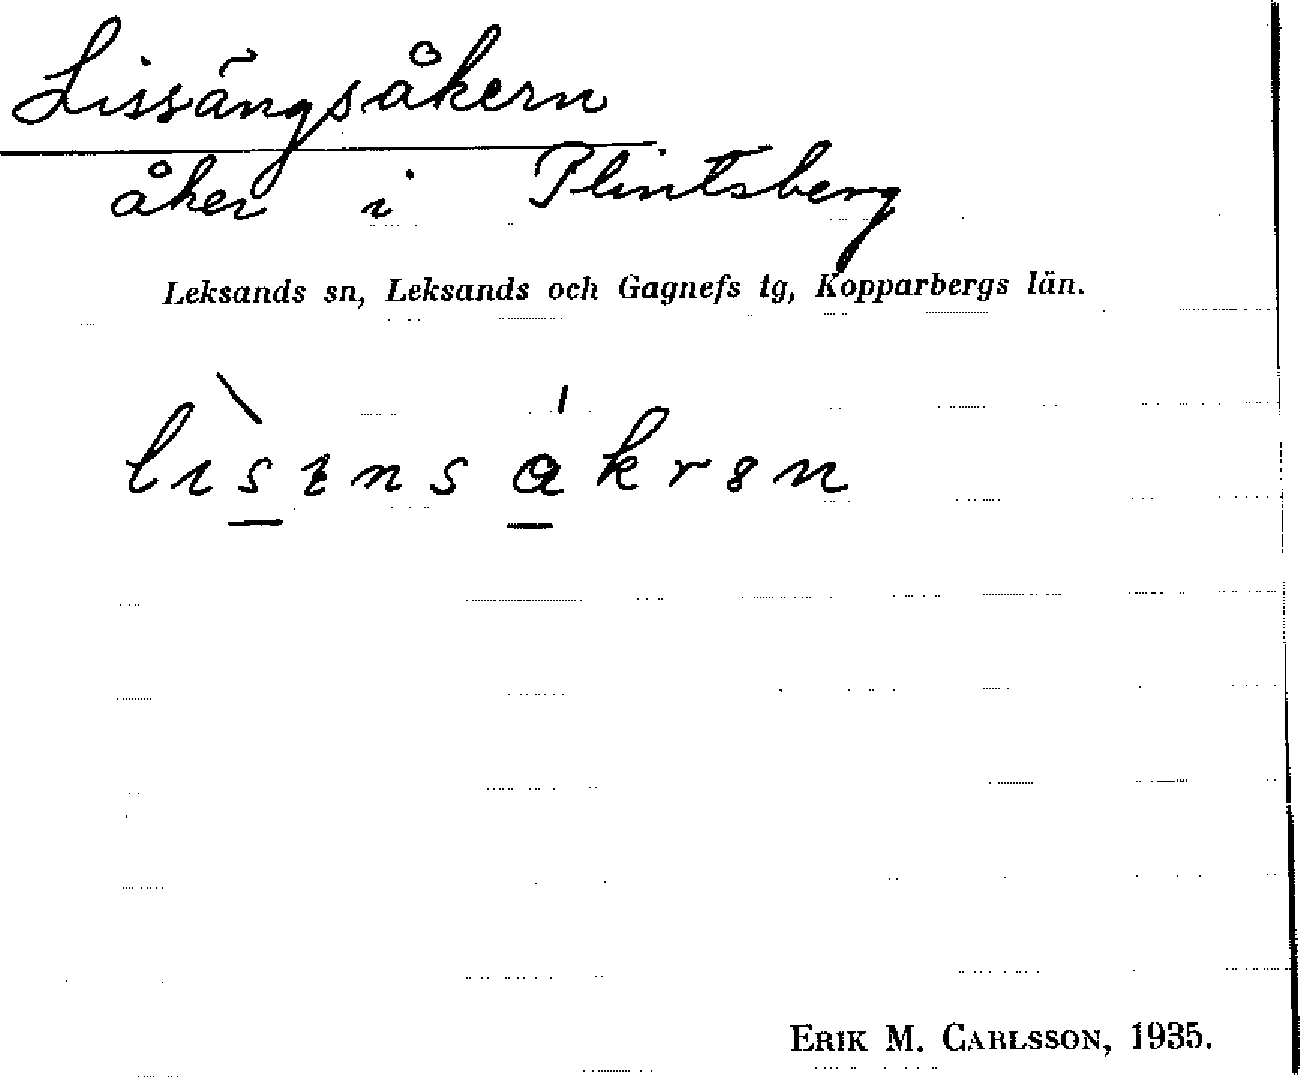 Lissängsåkern
åker i Plintsberg
Leksands sn, Leksands och Gagnefs tg, Kopparbergs län.
ERIK M. CARLSSON, 1935.